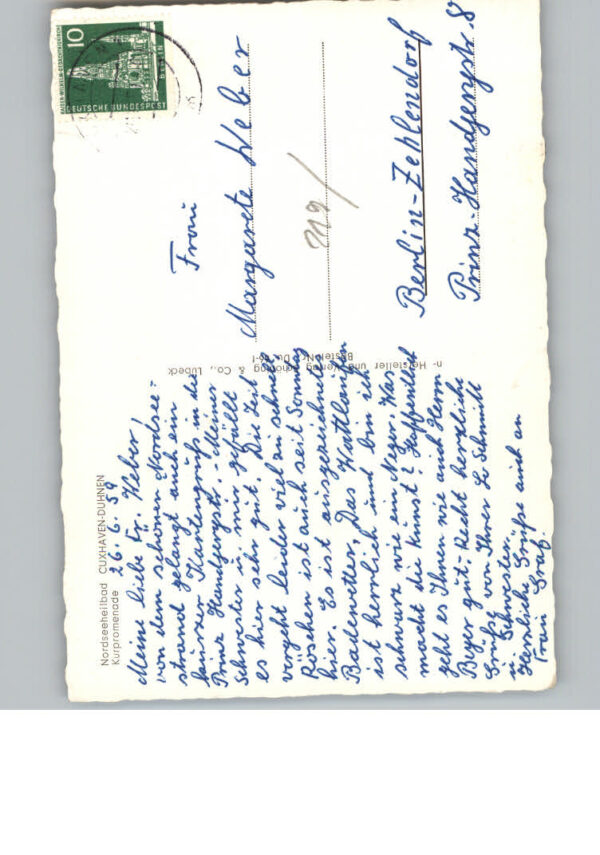 Nordseeheilbad CUXHAVEN-DUHNEN
Kurpromenade
26.6.59
Meine liebe Fr. Weber,
von dem schönen Nordsee-
strand gelangt auch ein
kurzer Kartengruß in die
Prinz Handjerystr. - Meiner
Schwester u. mir gefällt
es hier sehr gut. Die Zeit
vergeht leider viel zu schnell
Röschen ist auch seit Sonntag
hier. Es ist ausgezeichnetes
Badewetter, Das Wattlaufen
ist herrlich und bin ich
schwarz wie ein Neger. Was
macht die Kunst? Hoffentlich
geht es Ihnen wie auch Herrn
Beyer gut. Recht herzliche
Grüße von Ihrer L. Schmidt
u. Schwester
Herzliche Grüße auch an
Frau Graf.
Hersteller und Verlag Schöning & Co., Lübeck
Bestell-Nr. Du
10
DEUTSCHE BUNDESPOST
BERLIN
Frau
Margarete Weber
219/
Berlin-Zehlendorf
Prinz-Handjerystr. 8